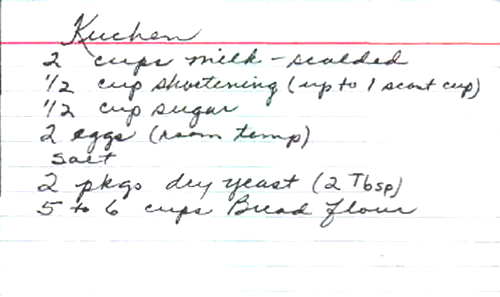 Kuchen
2 cups milk - scalded
1/2 cup shortening (up to 1 scant cup)
1/2 cup sugar
2 eggs (room temp)
salt
2 pkgs dry yeast (2 Tbsp)
5 to 6 cups Bread flour